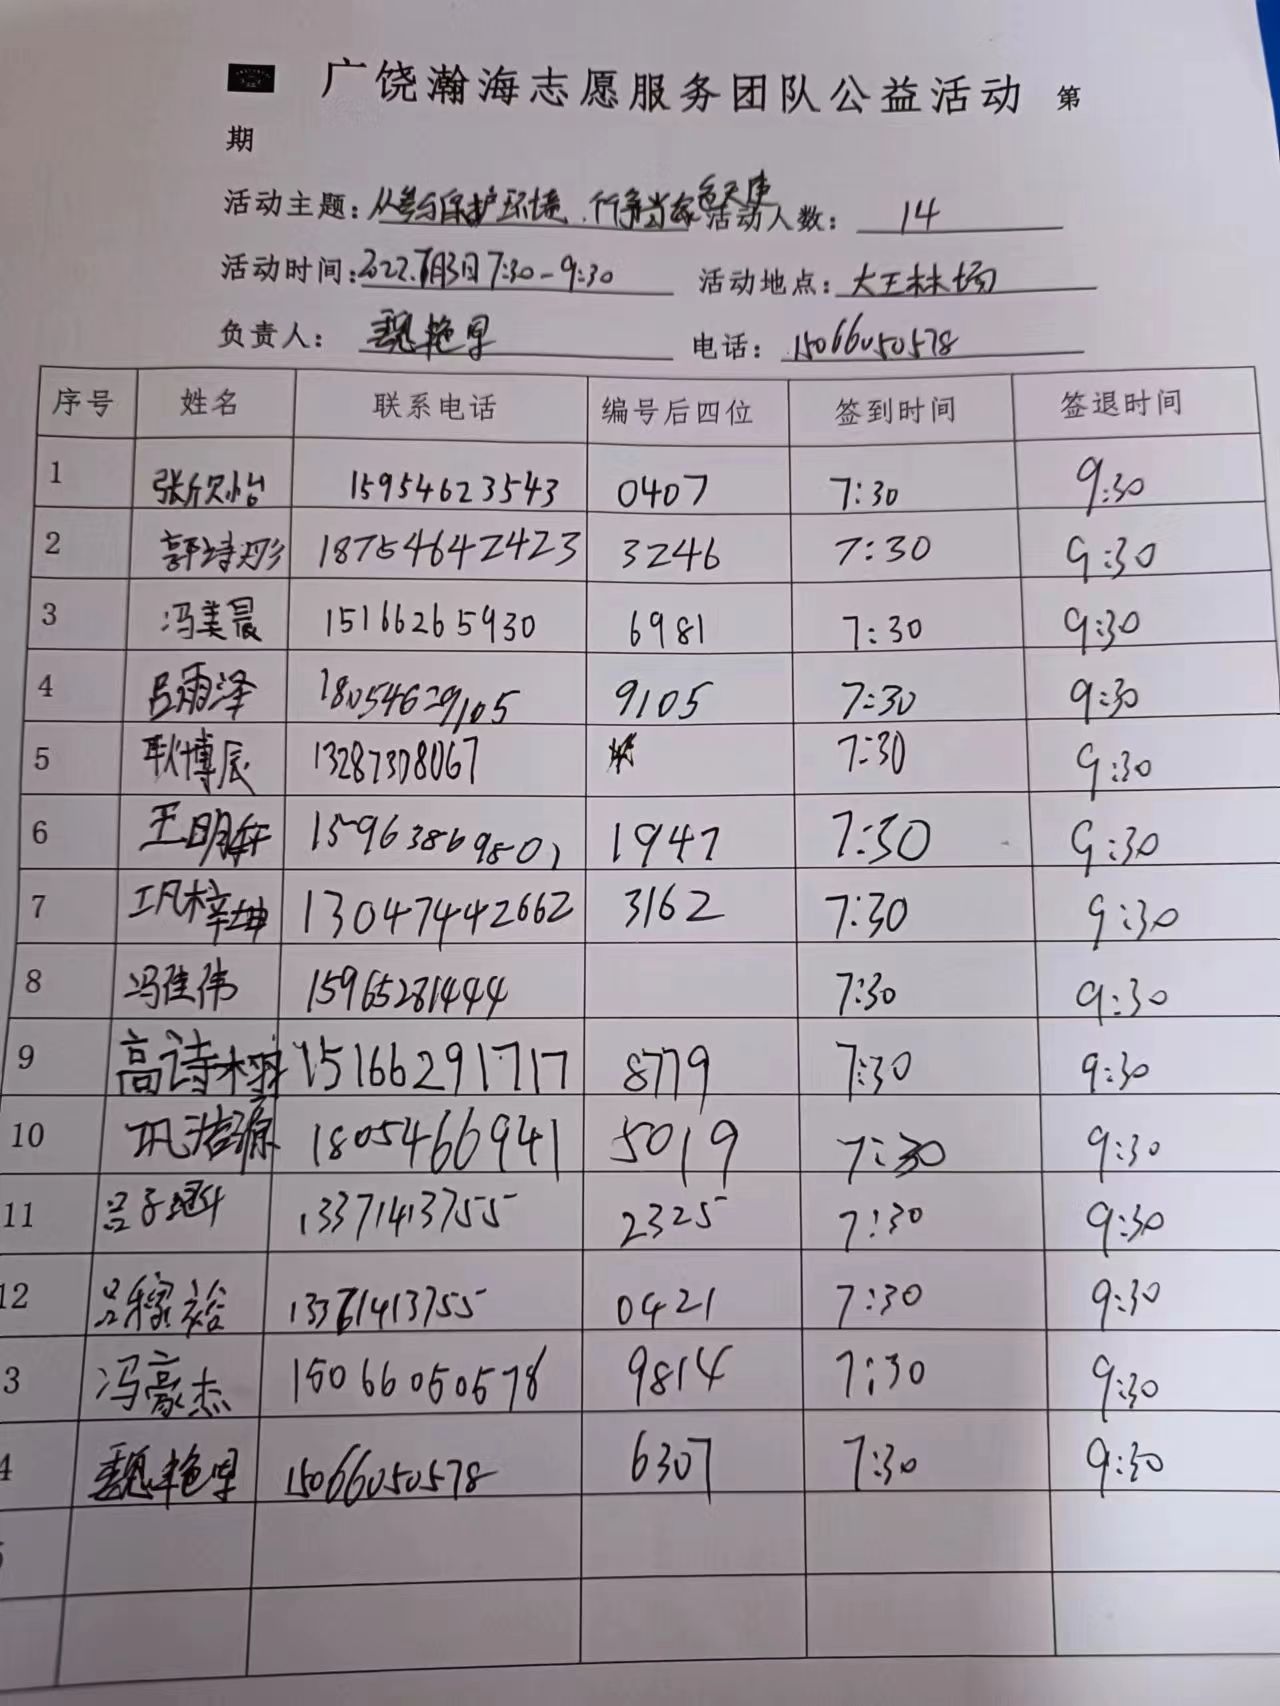 广饶瀚海志愿服务团队公益活动 第
期
活动主题：从参与保护环境、行争当 活动人数：14
活动时间：2022.7月3日7:30-9:30 活动地点：大王林场
负责人：魏艳早 电话：15066050578
序号 姓名 联系电话 编号后四位 签到时间 签退时间
1 张欣怡 15954623543 0407 7:30 9:30
2 郭诗彤 18754642423 3246 7:30 9:30
3 冯美晨 15166265930 6981 7:30 9:30
4 吕雨泽 18054629105 9105 7:30 9:30
5 耿博辰 13287308067 7:30 9:30
6 王明轩 15963869801 1947 7:30 9:30
7 巩梓坤 13047442662 3162 7:30 9:30
8 冯佳伟 15965281444 7:30 9:30
9 高诗 15166291717 8779 7:30 9:30
10 巩浩源 1805466941 5019 7:30 9:30
11 吕子 13371413755 2325 7:30 9:30
12 吕稼裕 13371413755 0421 7:30 9:30
3 冯豪杰 15066050578 9814 7:30 9:30
4 魏艳早 15066050578 6307 7:30 9:30